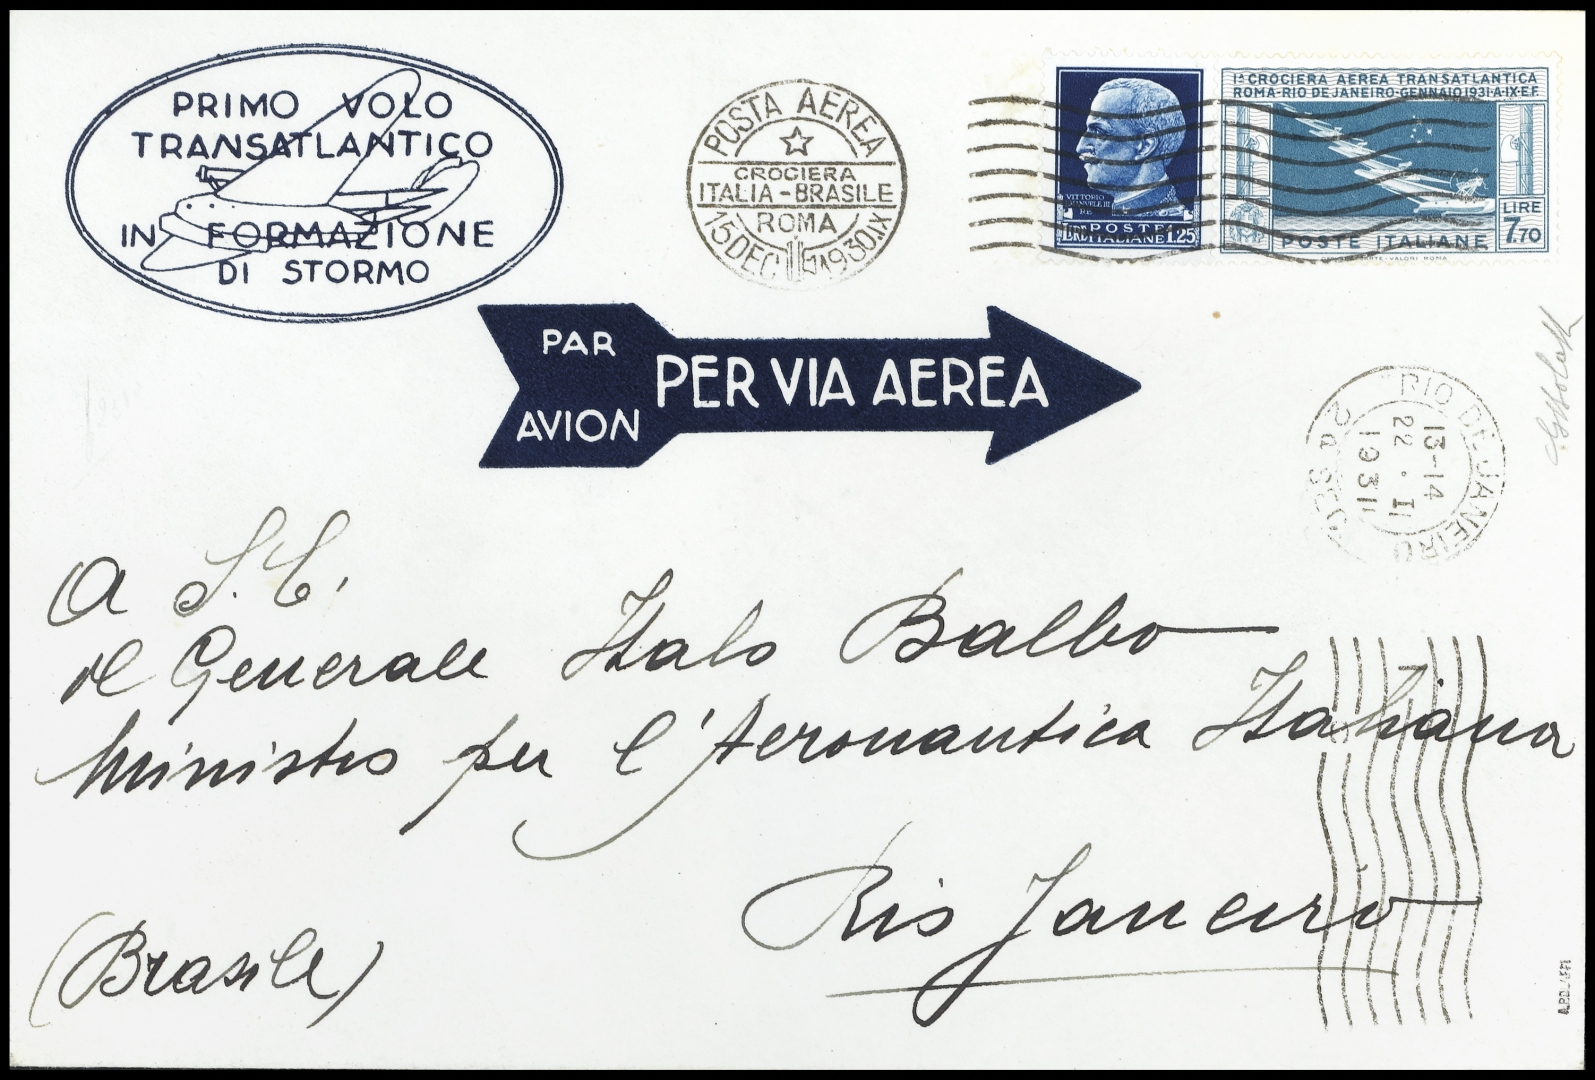 PRIMO VOLO
TRANSATLANTICO
IN FORMAZIONE
DI STORMO
POSTA AEREA
CROCIERA
ITALIA-BRASILE
ROMA
15 DEC 1930.IX
VITTORIO
EMANUELE III
RE
POSTE
ITALIANE 1.25
1ª CROCIERA AEREA TRANSATLANTICA
ROMA-RIO DE JANEIRO-GENNAIO 1931-A·IX·E.F.
LIRE
7.70
POSTE ITALIANE
PAR
AVION
PER VIA AEREA
RIO DE JANEIRO
13-14
22 . II
1931
A S. E.
il Generale Italo Balbo
Ministro per l'Aeronautica Italiana
Rio Janeiro
(Brasile)